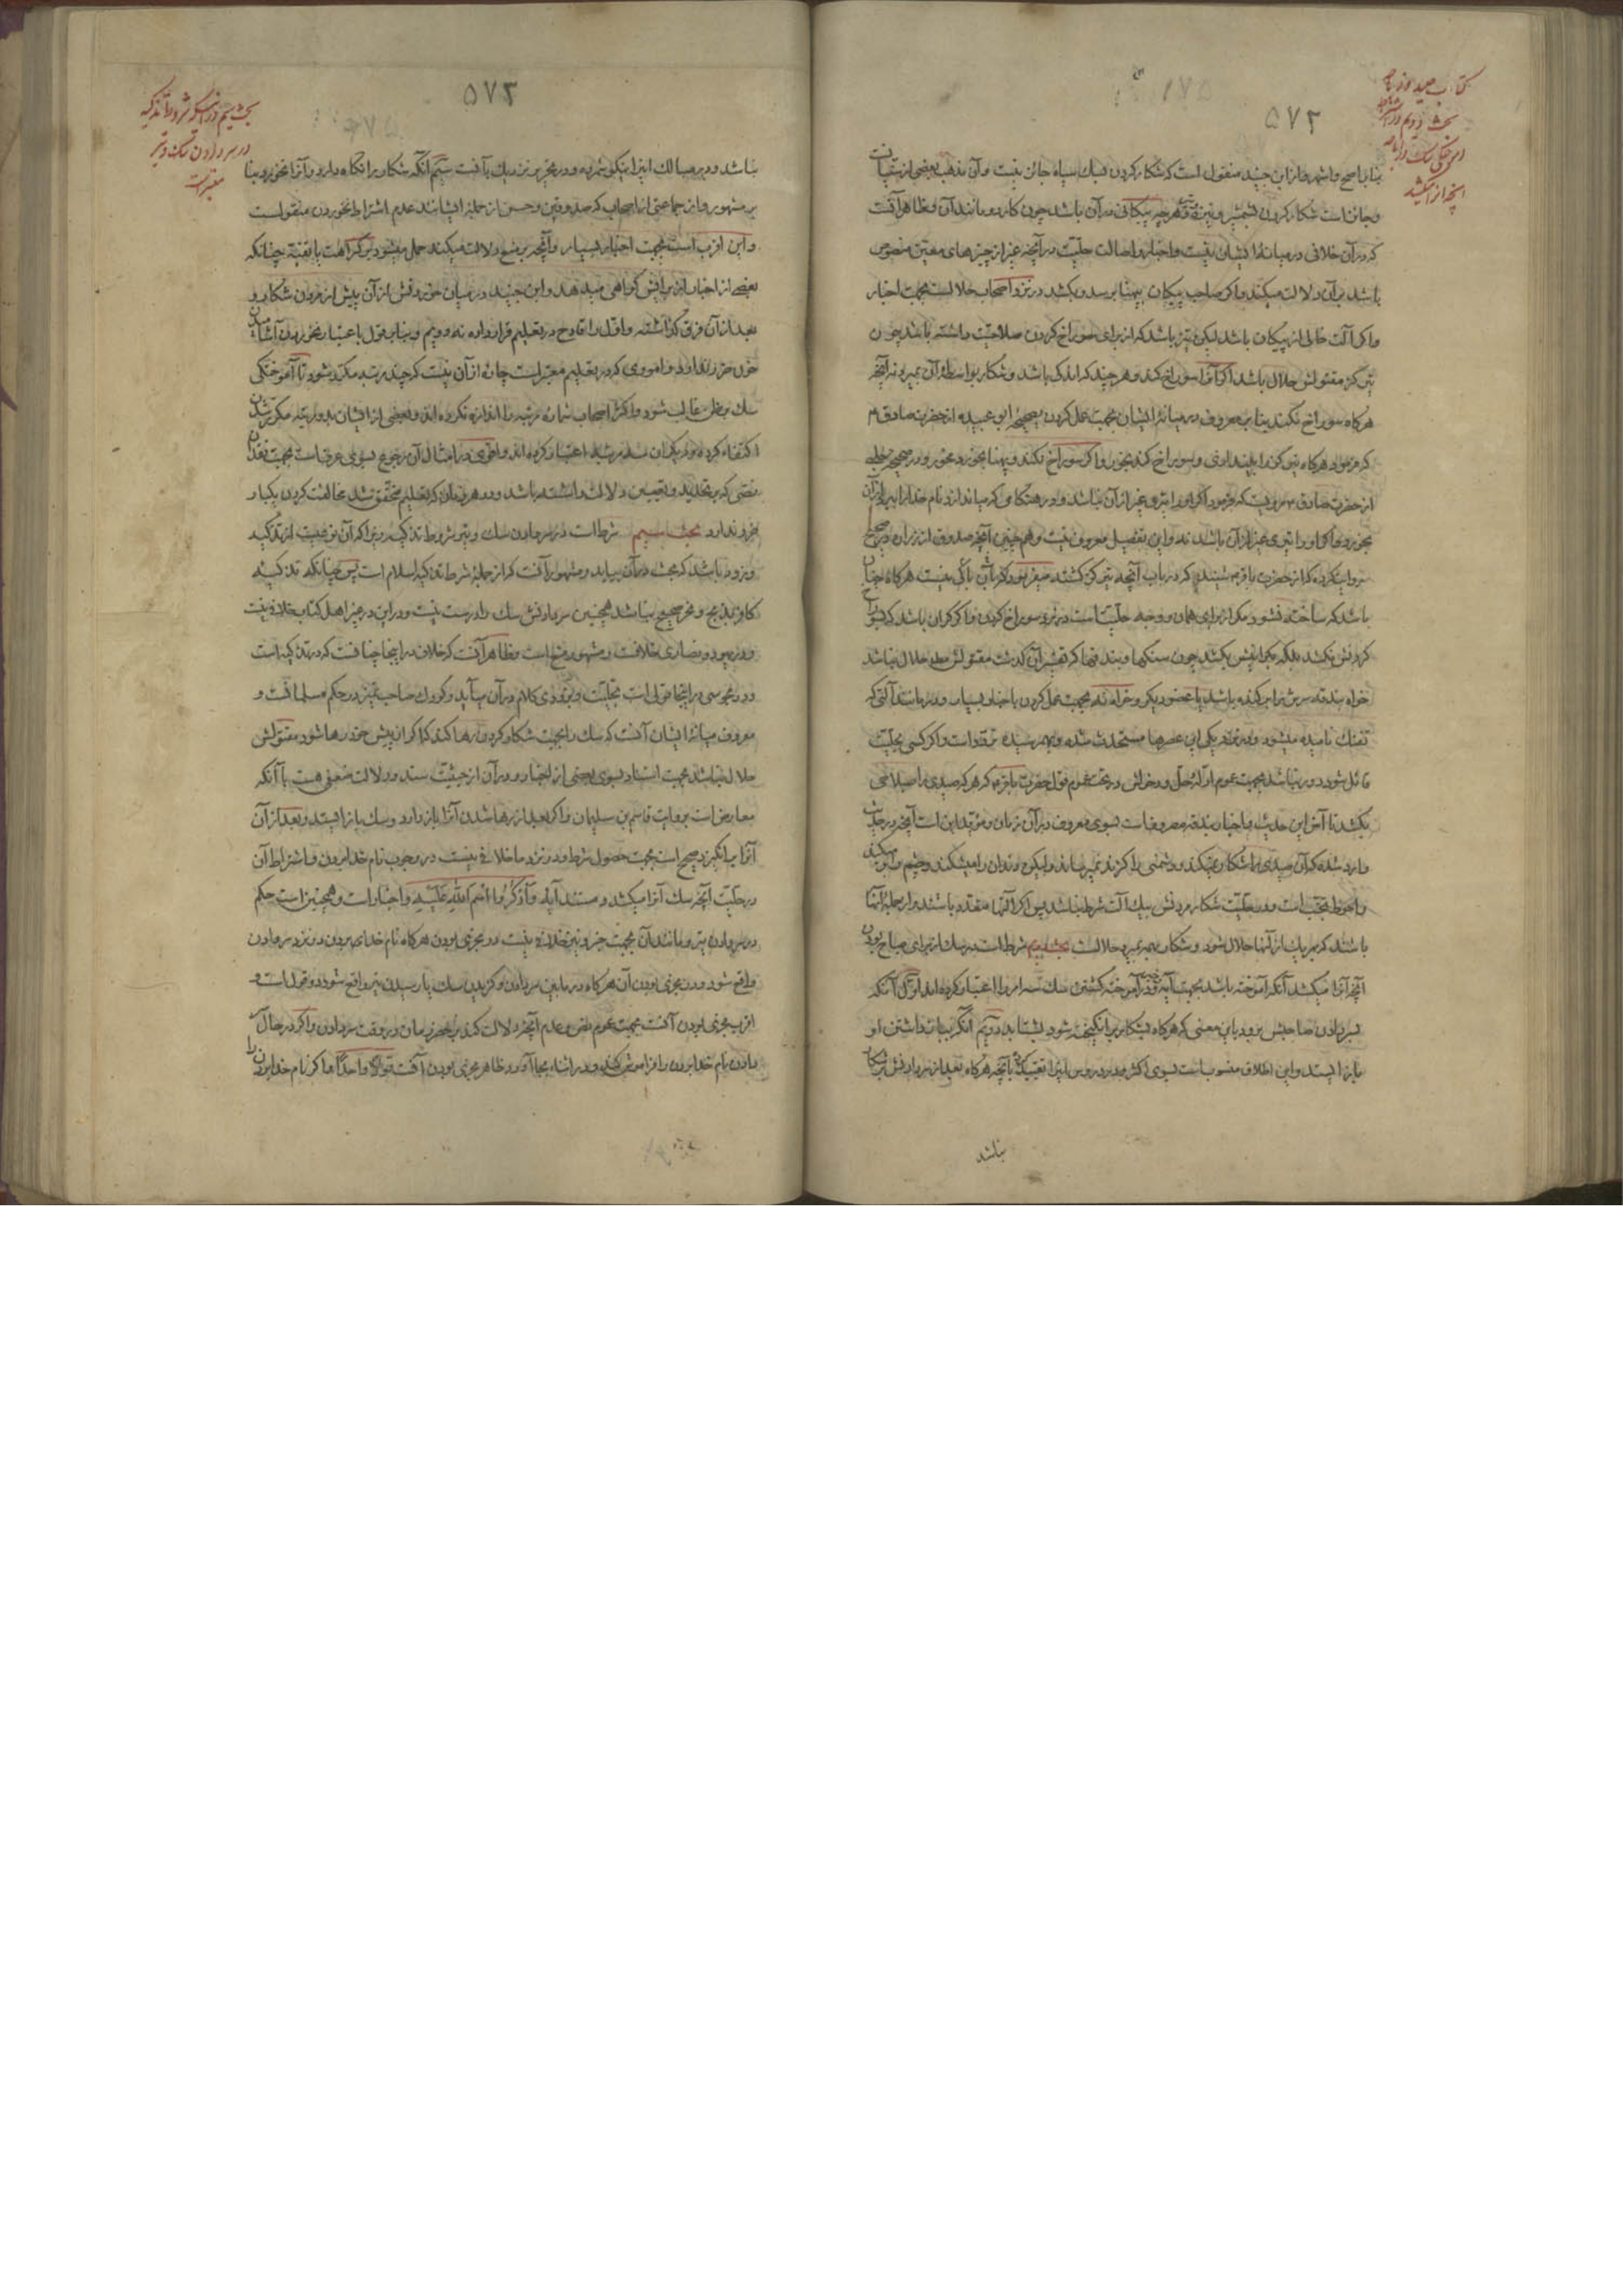 کتاب صید
بحث دویم در
سگ
آنچه را میکشد
۵۷۲
بنابر اصح و اشهر و از ابن جنید منقول است که شکار کردن بسگ سیاه جائز نیست و آن مذهب بعضی از سنیانست
و جائز است شکار کردن بشمشیر و نیزه و هرچه پیکانی در آن باشد چون کارد و مانند آن و ظاهر آنست
که در آن خلافی در میانهٔ ایشان نیست و اخبار و اصالت حلیت در آنچه غیر از چیزهای معین منصوص
باشد بر آن دلالت میکند و اگر صاحب پیکان بپهنا برسد و بکشد در نزد اصحاب حلالست بجهت اخبار
و اگر آلت خالی از پیکان باشد لیکن تیز باشد که از برای سوراخ کردن صلاحیت داشته باشد چون
تیر کز مقتولش حلال باشد اگر آنرا سوراخ کند و هر چند که اندک باشد و شکار بواسطهٔ آن بمیرد نه آنچه
هرگاه سوراخ نکند بنابر معروف در میانهٔ ایشان بجهت عمل کردن بصحیحهٔ ابو عبیده از حضرت صادق
که فرمود هرگاه تیر کز را بیندازی و سوراخ کند بخور و اگر سوراخ نکند و بپهنا بخورد مخور و در صحیح حلبی
از حضرت صادق مرویست که فرمود اگر او را تیری غیر از آن نباشد و در هنگامی که میاندازد نام خدا را ببرد از آن
بخورد و اگر او را تیری غیر از آن باشد نه و این تفصیل معروف نیست و همچنین آنچه صدوق از زراره در صحیح
روایت کرده که از حضرت باقر شنیدم که در باب آنچه تیر کز کشته میفرمود که بآن باکی نیست هرگاه چنان
باشد که ساخته نشود مگر از برای همان و وجه حلیت است در نزد سوراخ کردن و اگر گران باشد که بسوراخ
کردنش نکشد بلکه بگرانیش بکشد چون سنگها و بندقها که تفسیر آن گذشت مقتولش حلال نباشد
خواه بندقه سرش را بریده باشد یا عضو دیگر و خواه نه بجهت عمل کردن باخبار بسیار و در مانند آلتی که
تفنگ نامیده میشود و در نزدیکی این عصرها مستحدث شده و بهم رسیده تردد است و اگر کسی بحلیت
قائل شود دور نباشد بجهت عموم ادلهٔ حل و دخولش در تحت عموم قول حضرت باقر که هر که صیدی را بسلاحی
بکشد تا آخر این حدیث و اخبار بندقه مصروفست بسوی معروف در آن زمان و مؤید این است آنچه در حدیث
وارد شده که آن صیدی را شکار نمیکند و دشمنی را گزند نمیرساند ولیکن دندان را میشکند و چشم را کور میکند
و احوط تجنب است و در حلیت شکار مردنش بیک آلت شرط نباشد پس اگر آلتها متعدد باشند و از جملهٔ آنها
باشند که بهر یک از آنها حلال شود و شکار بهمه بمیرد حلالست بحث دویم شرط است در سگ از برای مباح بودن
آنچه آنرا میکشد آنکه آموخته باشد بجهت آیه و در آموخته گشتن سگ سه امر را اعتبار کرده اند اول آنکه
بسر دادن صاحبش برود باین معنی که هرگاه بشکار برانگیخته شود بشتابد دویم آنکه بباز داشتن او
بازایستد و این اطلاق منسوب است بسوی اکثر و در دروس اینرا تقیید کرده بآنچه هرگاه بعد از سر دادنش بر شکار
نباشد
بحث سیم در آنچه شروط تذکیه
در سر دادن سگ و تیر
معتبرست
۵۷۳
نباشد و در مسالک اینرا نیکو شمرده و در تحریر نزدیک بآنست سیم آنکه شکار را نگاه دارد و آنرا نخورد بنا
بر مشهور و از جماعتی از اصحاب که صدوقین و حسن از جملهٔ ایشانند عدم اشتراط نخوردن منقولست
و این اقرب است بجهت اخبار بسیار و آنچه بر منع دلالت میکند حمل میشود بر کراهت یا تقیه چنانکه
بعضی از اخبار بر این گواهی میدهد و ابن جنید در میان خوردنش از آن پیش از مردن شکار و
بعد از آن فرق گذاشته و اول را قادح در تعلیم قرار داده نه دویم و بنابر قول باعتبار نخوردن آشامیدن
خون ضرر ندارد و اموری که در تعلیم معتبر است چاره از آن نیست که چند مرتبه مکرر شود تا آموختگی
سگ بر ظن غالب شود و اکثر اصحاب شماره مرتبه را اندازه نکرده اند و بعضی از ایشان بدو مرتبه مکرر شدن
اکتفاء کرده و دیگران سه مرتبه اعتبار کرده اند و اقوی در امثال آن رجوع بسوی عرفست بجهت فقدان
نصی که بر تحدید و تعیین دلالت داشته باشد و در هر زمان که تعلیم متحقق شد مخالفت کردن یکبار
ضرر ندارد بحث سیم شرط است در سر دادن سگ و تیر شروط تذکیه زیرا که آن نوعیست از تذکیه
و زود باشد که بحث در آن بیاید و مشهور بآنست که از جملهٔ شرط تذکیه اسلام است پس چنانکه تذکیه
کافر بذبح و نحر صحیح نباشد همچنین سر دادنش سگ را درست نیست و در این در غیر اهل کتاب خلاف نیست
و در یهود و نصاری خلافست و مشهور منع است و ظاهر آنست که خلاف در اینجا چنانست که در تذکیه است
و در مجوسی در اینجا قولی است بحلیت و بزودی کلام در آن میآید و کودک صاحب تمیز در حکم مسلمانست و
معروف میانهٔ ایشان آنست که سگ را بجهت شکار کردن رها کند که اگر از پیش خود رها شود مقتولش
حلال نباشد بجهت استناد بسوی بعضی از اخبار و در آن از حیثیت سند و دلالت ضعفی هست با آنکه
معارض است بروایت قاسم بن سلیمان و اگر بعد از رها شدن آنرا باز دارد و سگ بازایستد و بعد از آن
آنرا برانگیزد صحیح است بجهت حصول شرط و در نزد ما خلافی نیست در وجوب نام خدا بردن و اشتراط آن
در حلیت آنچه سگ آنرا میکشد و مستند آیه وَاذْكُرُوا اسْمَ اللهِ عَلَيْهِ و اخبار است و همچنین است حکم
در سر دادن تیر و مانند آن بجهت خبر و نیز خلاف نیست در مجزی بودن هرگاه نام خدای بردن در نزد سر دادن
واقع شود و در مجزی بودن آن هرگاه در مابین سر دادن و گزیدن سگ یا رسیدن تیر واقع شود دو قول است و
اقرب مجزی بودن آنست بجهت عموم نص و عدم آنچه دلالت کند بر حصر زمان در وقت سر دادن و اگر در حال سر
دادن نام خدا بردن را فراموش کند و در اثناء بجا آورد ظاهر مجزی بودن آنست قولاً واحداً و اگر نام خدا بردن را